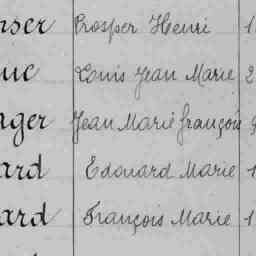 nser Prosper Henri 1
uc Louis Jean Marie 2
nger Jean Marie françois
ard Edouard Marie 1
ard François Marie 1